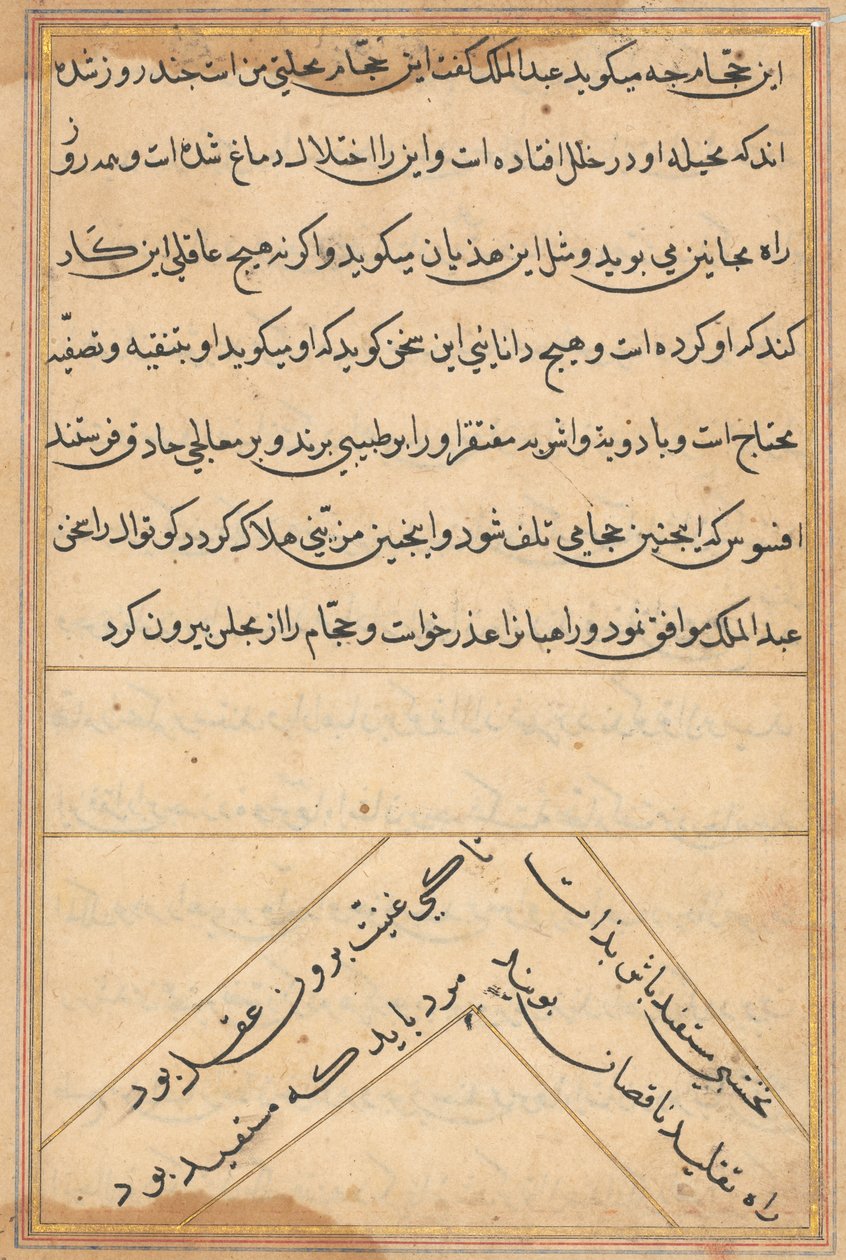 این حجّام جه میکوید عبد الملک کفت این حجّام محلتی من است جند روز شده
اند که مخیله او در خلل افتاده است و این را اختلال دماغ شده است و همه روز
راه مجانین می بوید و مثل این هذیان میکوید و اکرنه هیچ عاقلی این کار
کند که او کرده است و هیچ دانایئی این سخن کوید که او میکوید او بتنقیه و تصفیه
محتاج است و بادویة و اشربه مفتقر او را بر طبیبی برند و بر معالجی حادق فرستند
افسوس که اینجنین حجامی تلف شود و اینجنین مزیّنی هلاک کردد کوتوال را سخن
عبد الملک موافق نمود و راهبانرا عذر خواست و حجّام را از مجلس بیرون کرد
نخشبی مستفید باش بذات
تا کی غیبت برون عقد بود
راه تقلید ناقصان بویند
مرد باید که مستفید بود